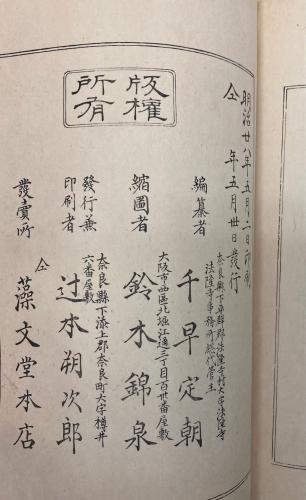 版權
所有
明治廿八年五月二日印刷
仝 年五月廿日發行
奈良縣下平群郡法隆寺村大字法隆寺
法隆寺事務所総代管主
編纂者 千早定朝
大阪市西區北堀江通三丁目百廿番屋敷
縮圖者 鈴木錦泉
奈良縣下添上郡奈良町大字樽井
六番屋敷
發行兼
印刷者 辻本朔次郎
發賣所 仝 藻文堂本店